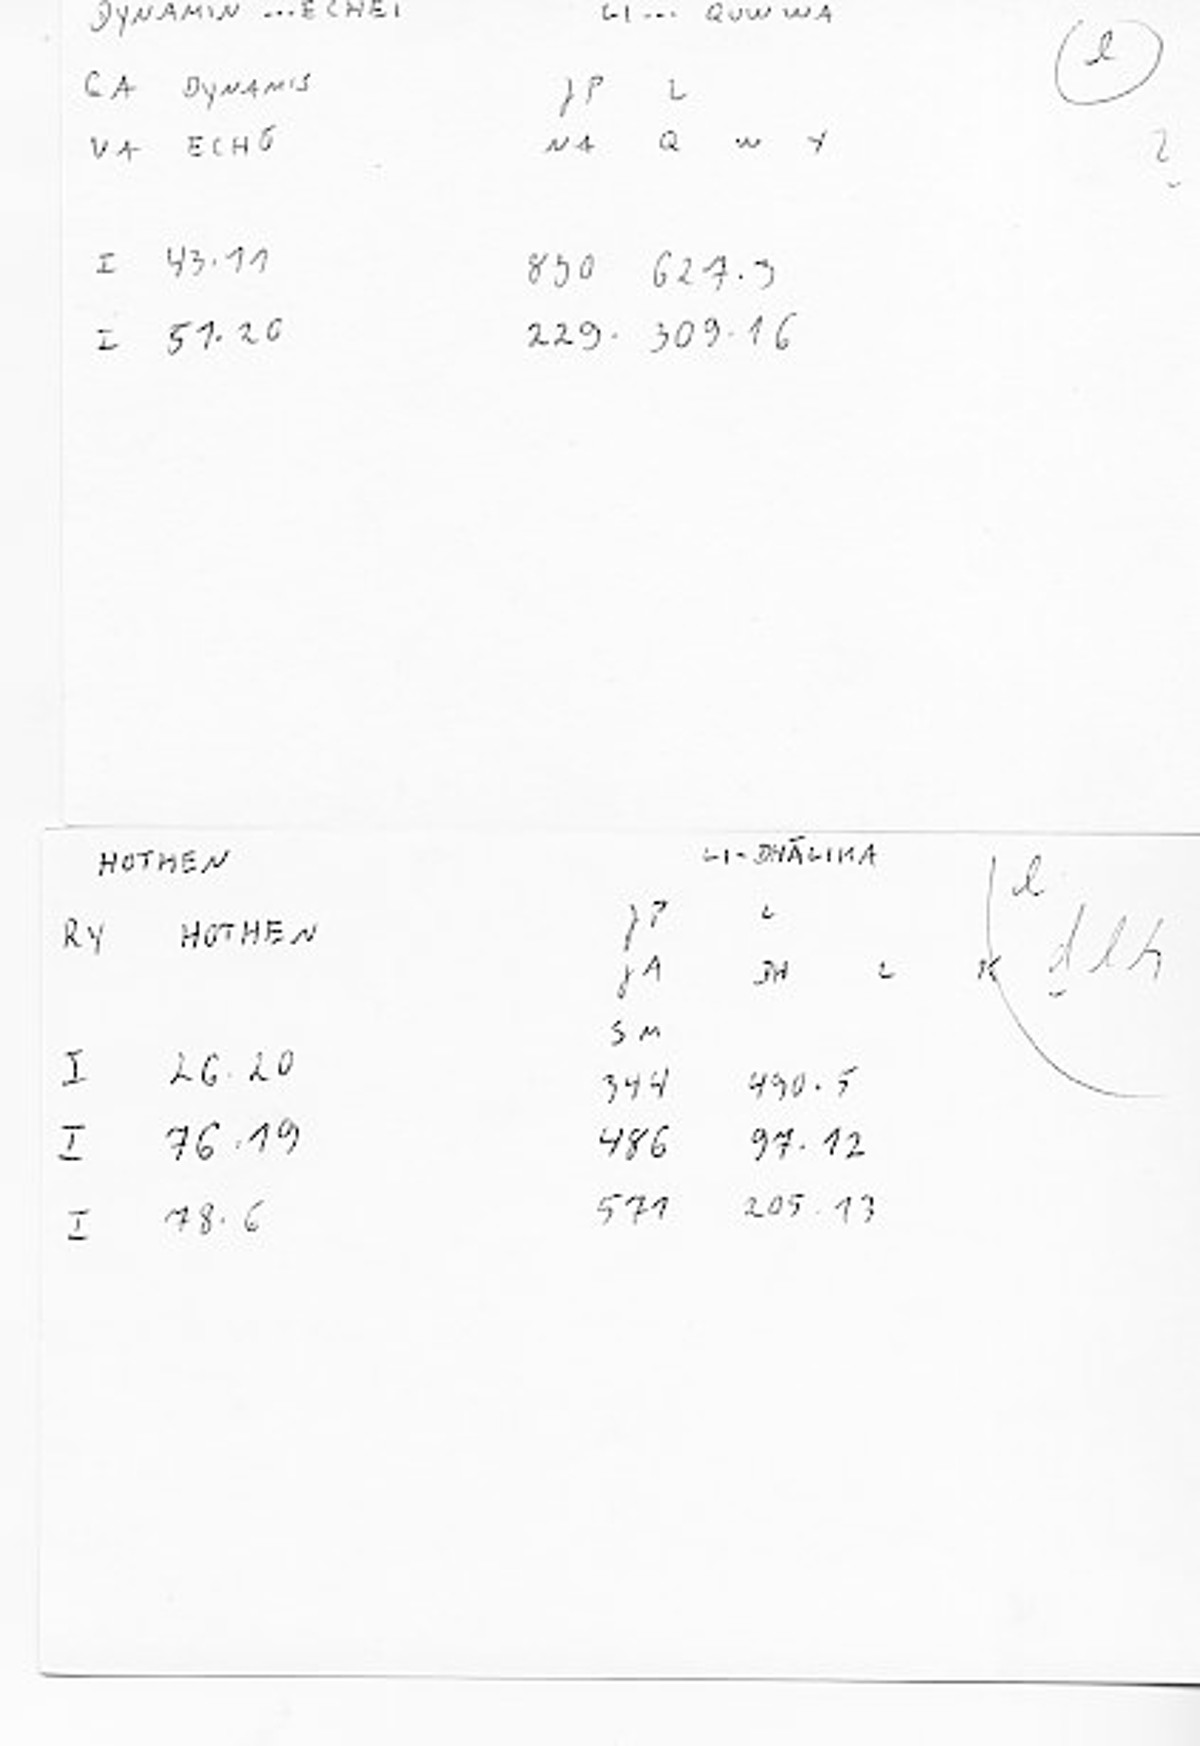 DYNAMIN ...ECHEI LI... QUWWA
CA DYNAMIS JP L l
VA ECHŌ NA Q W Y
I 43.11 830 627.3
I 51.20 229. 309.16
HOTHEN LI-DHĀLIKA l
RY HOTHEN JP L
JA DH L K
SM
I 26.20 344 490.5
I 76.19 486 97.12
I 78.6 571 205.13